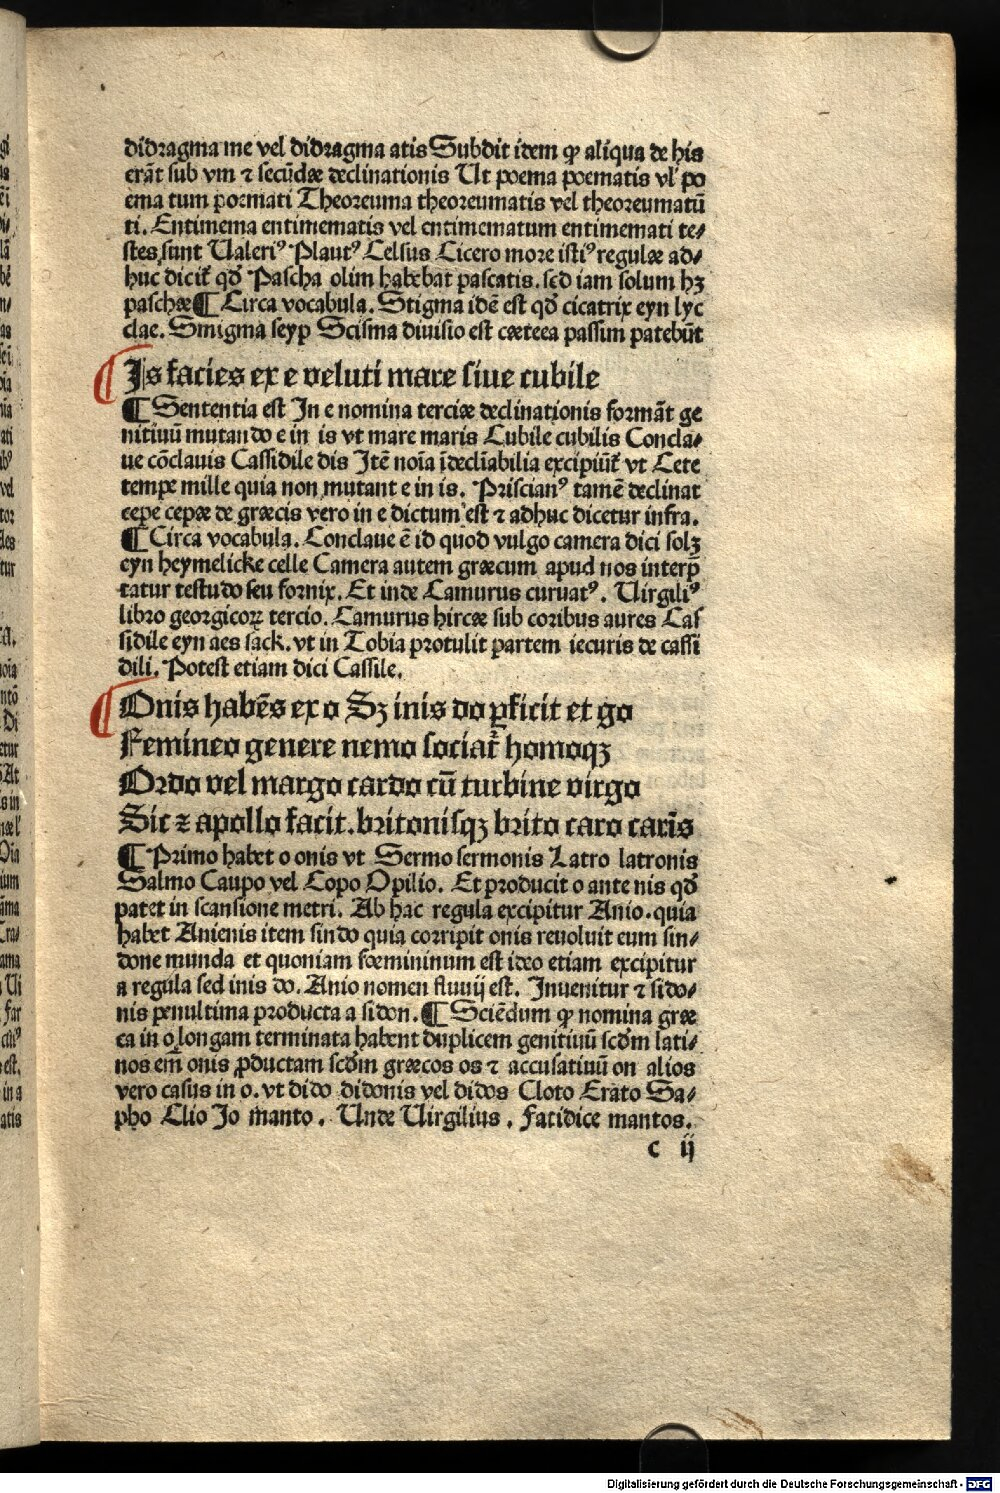 didragma me vel didragma atis Subdit idem ꝙ aliqua de his
erāt sub vm ⁊ secūdæ declinationis Ut poema poematis vl' po
ema tum poemati Theoreuma theoreumatis vel theoreumatū
ti. Entimema entimematis vel entimematum entimemati te⸗
stes sunt Ualeri⁹ Plaut⁹ Celsus Cicero more isti⁹ regulæ ad⸗
huc dicit̄ qđ Pascha olim habebat pascatis. sed iam solum hꝫ
paschæ ¶ Circa vocabula. Stigma idē est qđ cicatrix eyn lyc
clae. Smigma seyp Scisma diuisio est cæteea passim patebūt
Is facies ex e veluti mare siue cubile
¶ Sententia est In e nomina terciæ declinationis formāt ge
nitiuū mutando e in is vt mare maris Cubile cubilis Concla⸗
ue cōclauis Cassidile dis Itē noīa īdeclīabilia excipiūt̄ vt Cete
tempe mille quia non mutant e in is. Priscian⁹ tamē declinat
cepe cepæ de græcis vero in e dictum est ⁊ adhuc dicetur infra.
¶ Circa vocabula. Conclaue ē id quod vulgo camera dici solꝫ
eyn heymelicke celle Camera autem græcum apud nos interp̄
tatur testudo seu fornix. Et inde Camurus curuat⁹. Uirgili⁹
libro georgicoꝝ tercio. Camurus hircæ sub coribus aures Cas
sidile eyn aes sack. vt in Tobia protulit partem iecuris de cassi
dili. Potest etiam dici Cassile.
Onis habēs ex o Sꝫ inis do ꝑficit et go
Femineo genere nemo sociat̄ homoqꝫ
Ordo vel margo cardo cū turbine virgo
Sic ⁊ apollo facit. britonisqꝫ brito caro carīs
¶ Primo habet o onis vt Sermo sermonis Latro latronis
Salmo Caupo vel Copo Opilio. Et producit o ante nis qđ
patet in scansione metri. Ab hac regula excipitur Anio. quia
habet Anienis item sindo quia corripit onis reuoluit eum sin⸗
done munda et quoniam fœmininum est ideo etiam excipitur
a regula sed inis do. Anio nomen fluuij est. Inuenitur ⁊ sido⸗
nis penultima producta a sidon. ¶ Sciēdum ꝙ nomina græ
ca in o longam terminata habent duplicem genitiuū scđm lati⸗
nos em̄ onis ꝓductam scđm græcos os ⁊ accusatiuū on alios
vero casus in o. vt dido didonis vel didos Cloto Erato Sa⸗
pho Clio Io manto. Unde Uirgilius. Fatidice mantos.
c ij
Digitalisierung gefördert durch die Deutsche Forschungsgemeinschaft - DFG